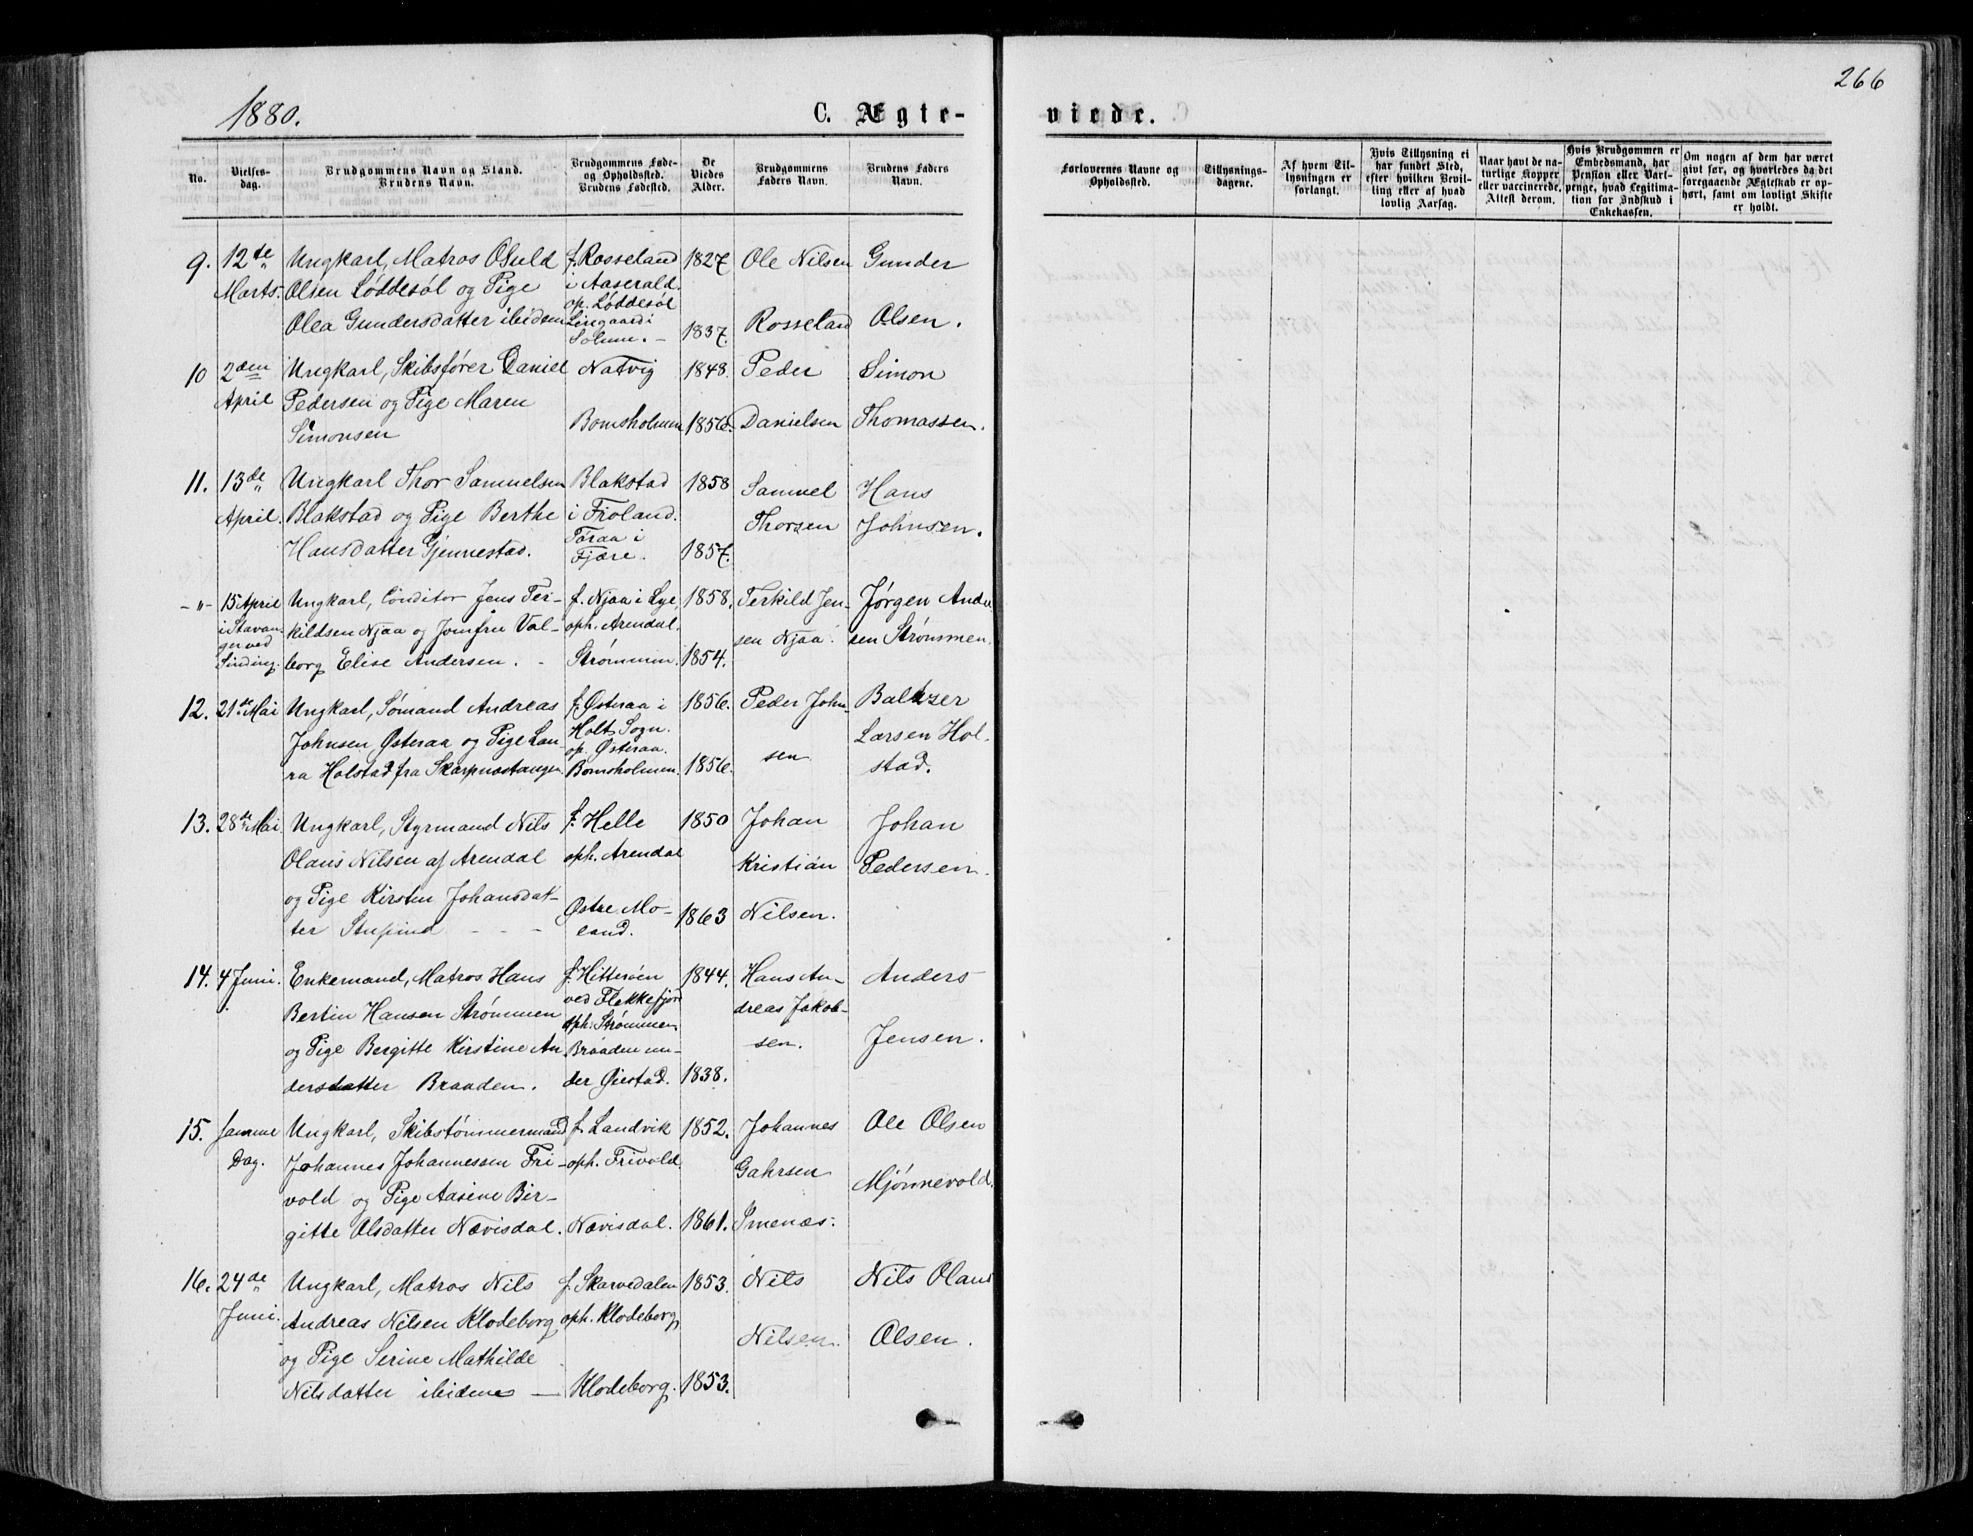 266
1880.
C. Ægte-
viede.
No.
Vielses-
dag.
Brudgommens Navn og Stand.
Brudens Navn.
Brudgommens Føde-
og Opholdssted.
Brudens Fødested.
De
Viedes
Alder.
Brudgommens
Faders Navn.
Brudens Faders
Navn.
Forlovernes Navne og
Opholdssted.
Tillysnings-
dagene.
Af hvem Til-
lysningen er
forlangt.
Hvis Tillysning ei
har fundet Sted,
efter hvilken Bevil-
ling eller af hvad
lovlig Aarsag.
Naar havt de na-
turlige Kopper
eller vaccinerede.
Attest derom.
Hvis Brudgommen er
Embedsmand, har
Pension eller Vart-
penge, hvad Legitima-
tion for Indskud i
Enkekassen.
Om nogen af dem har været
givt før, og hvorledes da det
foregaaende Ægteskab er op-
hørt, samt om lovligt Skifte
er holdt.
9.
12te
Marts.
Ungkarl, Matros Osuld
Olsen Løddesøl og Pige
Olea Gundersdatter ibidem
f. Rosseland
i Aaserald.
op. Løddesøl
1827
1837.
Ole Nilsen
Rosseland
Gunder
Olsen.
10
2den
April
Ungkarl, Skibsfører Daniel
Pedersen og Pige Maren
Simonsen
Natvig
Bomsholmen
1848.
1856.
Peder
Danielsen
Simon
Thomassen.
11.
13de
April.
Ungkarl Thor Samuelsen
Blakstad og Pige Berthe
Hansdatter Gjennestad.
Blakstad
i Froland.
Taraa i
Fjære.
1858
1857.
Samuel
Thorsen
Hans
Johnsen.
-"-
15 April
i Stavan-
ger ved
Sinding.
Ungkarl, Conditor Jens Ter-
kildsen Njaa og Jomfru Val-
borg Elise Andersen.
f. Njaa i Lye
oph. Arendal.
Strømmen.
1858.
1854.
Terkild Jen-
sen Njaa.
Jørgen Ander-
sen Strømmen.
12.
21de Mai
Ungkarl, Sømand Andreas
Johnsen Østeraa og Pige Lau-
ra Holstad fra Skarpnostangen
f. Østeraa i
Holt Sogn.
op. Østeraa.
Bomsholmen.
1856.
1856.
Peder John-
sen
Baltzer
Larsen Hol-
stad.
13.
28de Mai
Ungkarl, Styrmand Nils
Olaus Nilsen af Arendal
og Pige Kirsten Johansdat-
ter
f. Helle
oph. Arendal
Østre Mo-
land.
1850
1863
Johan
Kristian
Nilsen.
Johan
Pedersen.
14.
4 Juni.
Enkemand, Matros Hans
Bertin Hansen Strømmen
og Pige Bergitte Kirstine An-
dersdatter Braaden.
f. Hitterøen
ved Flekkefjord
oph. Strømmen
Braaden un-
der Øiestad.
1844.
1838.
Hans An-
dreas Jakob-
sen.
Anders
Jensen.
15.
samme
Dag.
Ungkarl, Skibstømmermand
Johannes Johannessen Fri-
vold og Pige Aasine Bir-
gitte Olsdatter Nævisdal.
f. Landvik
oph. Frivold.
Nævisdal.
1852.
1861.
Johannes
Gahrsen
Imenæs.
Ole Olsen
Mjønnevold.
16.
24de
Juni.
Ungkarl, Matros Nils
Andreas Nilsen Klodeborg
og Pige Serine Mathilde
Nilsdatter ibidem
f. Skarvedalen
oph. Klodeborg
Klodeborg.
1853.
1853.
Nils
Nilsen.
Nils Olaus
Olsen.